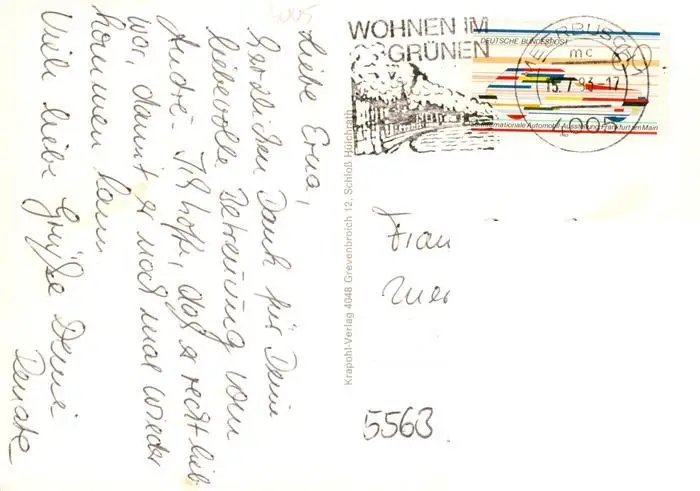 4005
Liebe Erna,
herzlichen Dank für Deine
liebevolle Betreuung vom
André. Ich hoffe, daß er recht lieb
war, damit er noch mal wieder
kommen kann.
Viele liebe Grüße Deine
Renate
WOHNEN IM
GRÜNEN
DEUTSCHE BUNDESPOST
60
Internationale Automobil-Ausstellung Frankfurt am Main
MEERBUSCH 1
mc
15.7.83-17
4005
Krapohl-Verlag 4048 Grevenbroich 12, Schloß Hülchrath
Frau
5563